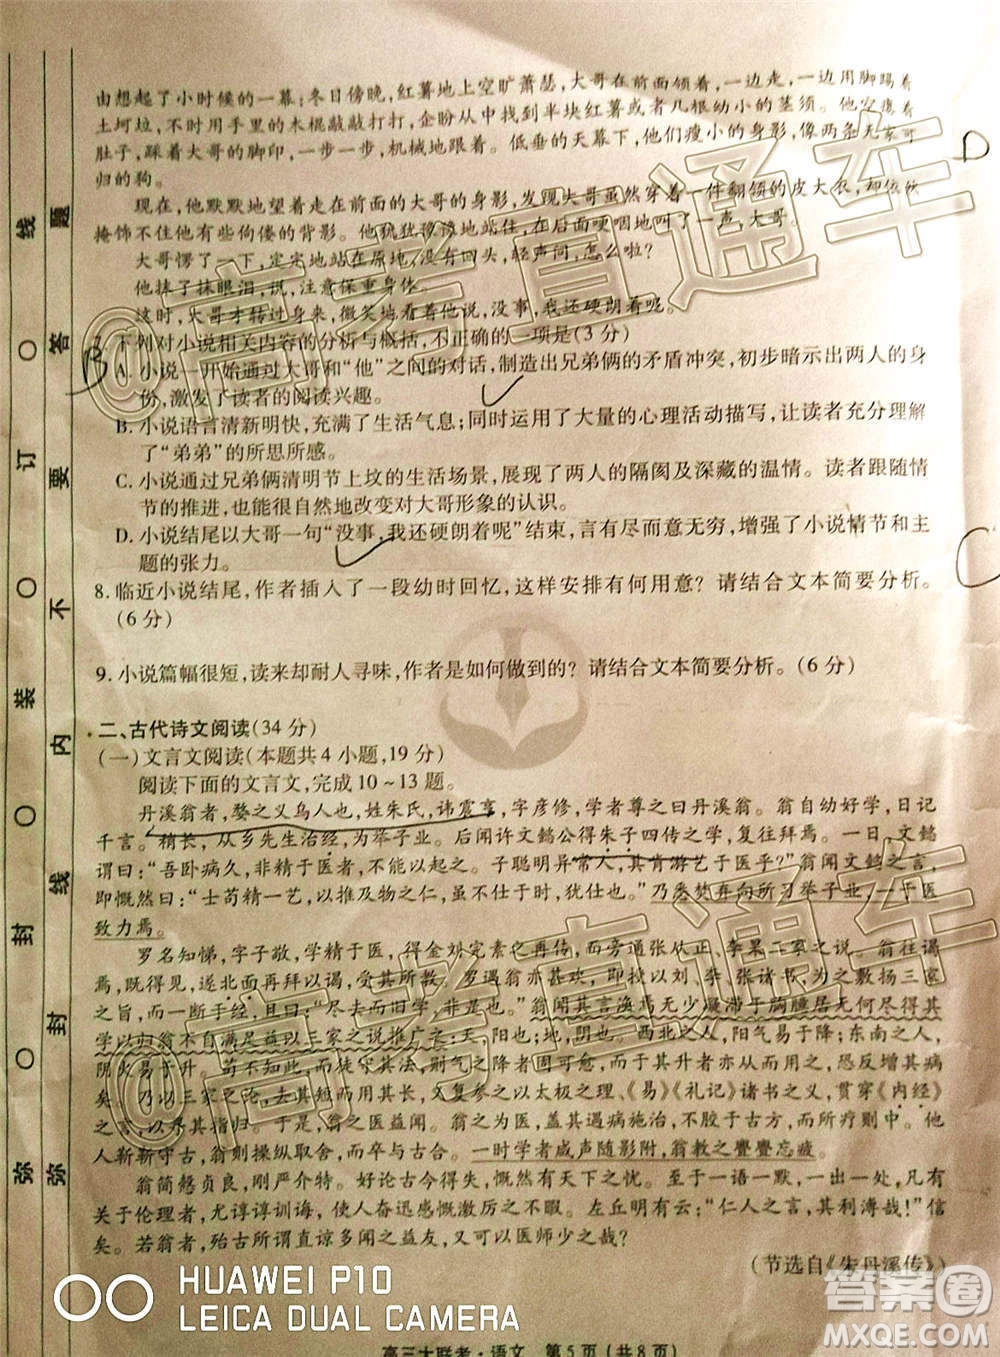 由想起了小时候的一幕:冬日傍晚,红薯地上空旷萧瑟,大哥在前面领着,一边走,一边用脚踢着
土坷垃,不时用手里的木棍敲敲打打,企盼分享到半块红薯或者几根幼小的茎须。他穿着
肚子,踩着大哥的脚印,一步一步,机械地跟着。昏暗低垂的天幕下,他们瘦小的身影,像两条无家可
归的狗。
现在,他默默地望着走在前面的大哥的身影,突然发现大哥虽然穿着一件翻领的皮大衣,却依然
掩饰不住他有些佝偻的背影。他犹犹豫豫地站住,在后面哽咽地叫了一声,大哥。
大哥愣了一下,定定地站在原地,没有回头,轻声问,怎么啦?
他抹了抹眼泪,说,注意保重身体。
这时,大哥才转过身来,微笑地看着他说,没事,我还硬朗着呢。
7.下列对小说相关内容的分析与概括,不正确的一项是(3 分)
A.小说一开始通过大哥和“他”之间的对话,制造出兄弟俩的矛盾冲突,初步暗示出两人的身
份,激发了读者的阅读兴趣。
B.小说语言清新明快,充满了生活气息;同时运用了大量的心理活动描写,让读者充分理解
了“弟弟”的所思所感。
C.小说通过兄弟俩清明节上坟的生活场景,展现了两人的隔阂及深藏的温情。读者跟随情
节的推进,也能很自然地改变对大哥形象的认识。
D.小说结尾以大哥一句“没事,我还硬朗着呢”结束,言有尽而意无穷,增强了小说情节和主
题的张力。
8.临近小说结尾,作者插入了一段幼时回忆,这样安排有何用意?请结合文本简要分析。
(6 分)
9.小说篇幅很短,读来却耐人寻味,作者是如何做到的?请结合文本简要分析。(6 分)
二、古代诗文阅读(34 分)
(一)文言文阅读(本题共 4 小题,19 分)
阅读下面的文言文,完成 10~13 题。
丹溪翁者,婺之义乌人也,姓朱氏,讳震亨,字彦修,学者尊之曰丹溪翁。翁自幼好学,日记
千言。稍长,从乡先生治经,为举子业。后闻许文懿公得朱子四传之学,复往拜焉。一日,文懿
谓曰:“吾卧病久,非精于医者不能以起之。子聪明异常人,其肯游艺于医乎?”翁闻文懿之言,
即慨然曰:“士苟精一艺,以推及物之仁,虽不仕于时,犹仕也。”乃悉焚弃向所习举子业,一于医
致力焉。
罗名知悌,字子敬,学精于医,得金刘完素之再传,而旁通张从正、李杲二家之说。翁往谒
焉,遂北面再拜以谒,受其所教。罗遇翁亦甚欢,即授以刘、李、张诸书,为之敷扬三家
之旨,而一断于经,且曰:“尽去而旧学,非是也。”翁闻其言涣焉无少凝滞于胸臆居无何尽得其
学以归
翁自不满足益以三家之说推广之:天,阳也;地,阴也。西北之人,阳气易于降;东南之人,
阴火易于升。苟不知此,而徒守其法,则气之降者固可愈,而于其升者亦从而用之,吾恐反增其病
矣。乃以三家之论,去其短而用其长,又复参之以太极之理、《易》《礼记》诸书之义,贯穿《内经》
之言,以寻其指归。于是,诸医之笑且排者,始皆心服口誉。翁之为医,盖其遇病施治,不胶于古方,而所疗则中。他
人靳靳守古,翁则操纵取舍,而卒与古合。一时学者咸声随影附,翁教之亹亹忘疲。
翁简悫贞良,刚严介特。好论古今得失,慨然有天下之忧。至于一语一默,一出一处,凡有
关于伦理者,尤谆谆训诲,使人奋迅感慨激厉之不暇。左丘明有云:“仁人之言,其利溥哉!”
信矣。若翁者,殆古所谓直谅多闻之益友,又可以医师少之哉!
(节选自《朱丹溪传》)
高三大联考·语文 第 5 页(共 8 页)
弥 ○ 封 ○ 装 ○ 订 ○ 线
弥 封 线 内 不 要 答 题
@高考直通车
@高考直通车
HUAWEI P10
LEICA DUAL CAMERA
答案圈
MXQE.COM